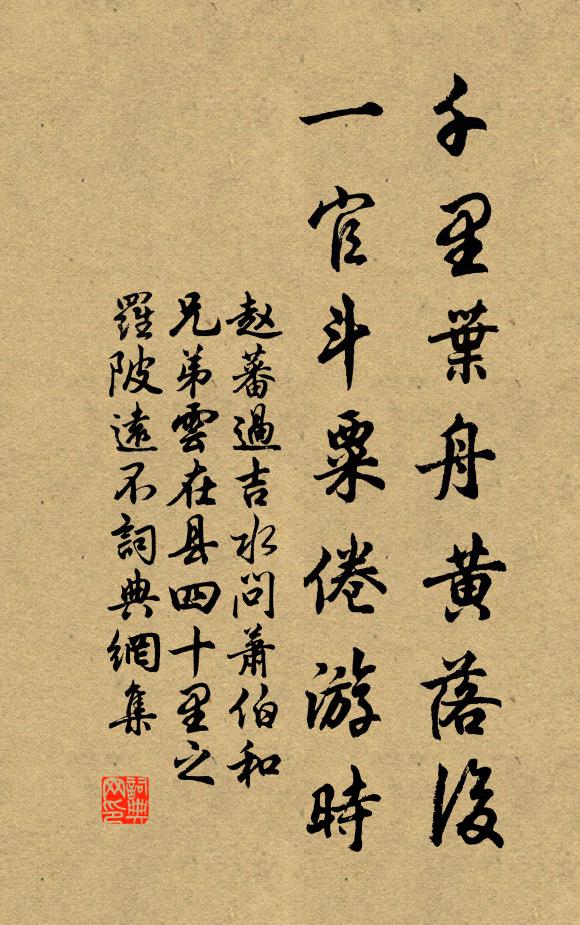 千里葉舟黄落後
一官斗粟倦游時
赵蕃過吉水問萧伯和
兄弟雲在县四十里之
羅陂遠不詞典網集
詞典
网印